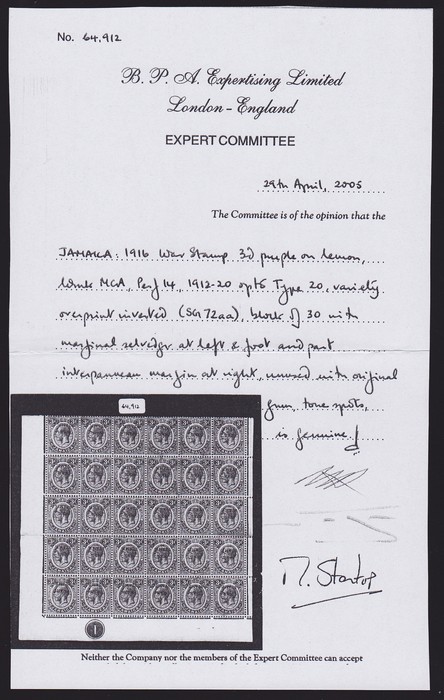 No. 64,912
B. P. A. Expertising Limited
London - England
EXPERT COMMITTEE
29th April, 2005
The Committee is of the opinion that the
JAMAICA: 1916 War Stamp 3d purple on lemon,
wmk MCA, Perf 14, 1912-20 opts Type 20, variety
overprint inverted (SG 72aa), block of 30 with
marginal selvedge at left & foot and part
interpanneau margin at right, unused with original
gum, tone spots,
is genuine
64,912
1
Neither the Company nor the members of the Expert Committee can accept